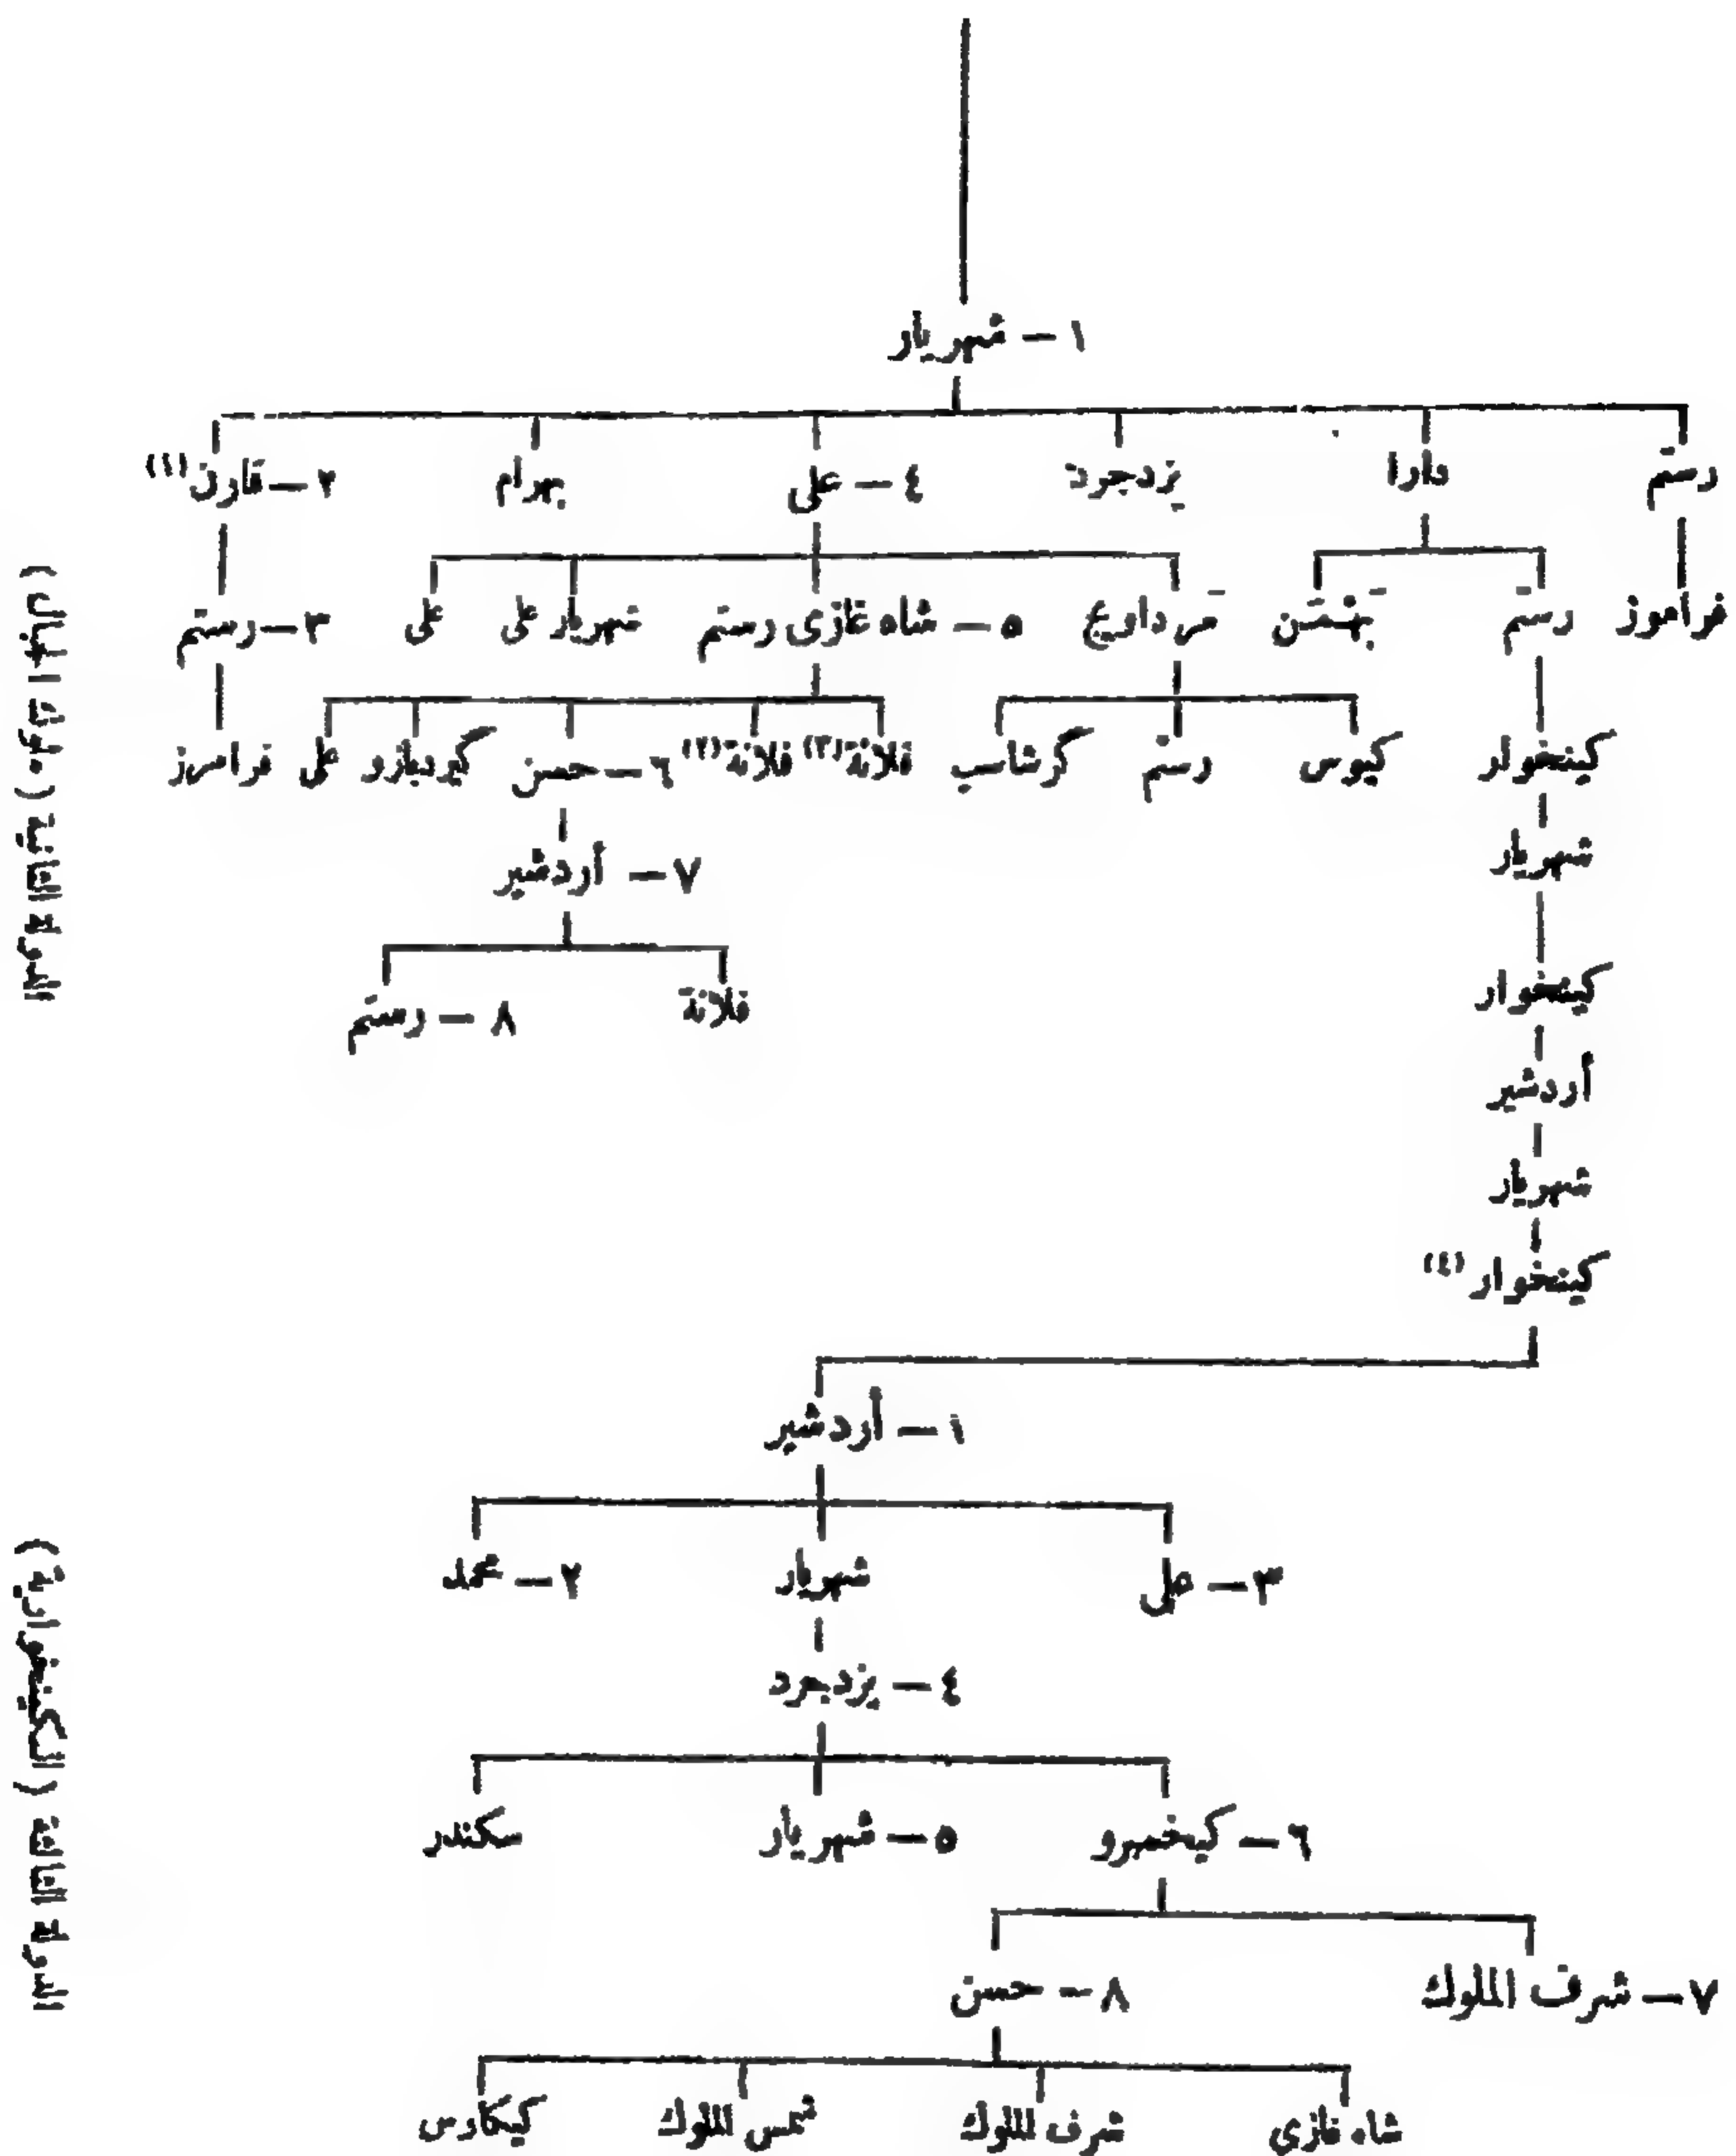 ١ – شهريار
رستم دارا يزدجرد ٤ – على بهرام ٢ – قارن (١)
فرامرز رستم بهمن مرداويج ٥ – شاه غازى رستم شهريار على على ٣ – رستم
كينخوار كيوس رستم گرشاسب فلانة (٣) فلانة (٢) ٦ – حسن گردبازو على فرامرز
شهريار ٧ – أردشير
كينخوار فلانة ٨ – رستم
أردشير
شهريار
كينخوار (٤)
١ – أردشير
٣ – على شهريار ٢ – محمد
٤ – يزدجرد
٦ – كيخسرو ٥ – شهريار سكندر
٧ – شرف الملوك ٨ – حسن
شاه غازى شرف الملوك شمس الملوك كيكاوس
الفرع الثالث (الكينخوارية)